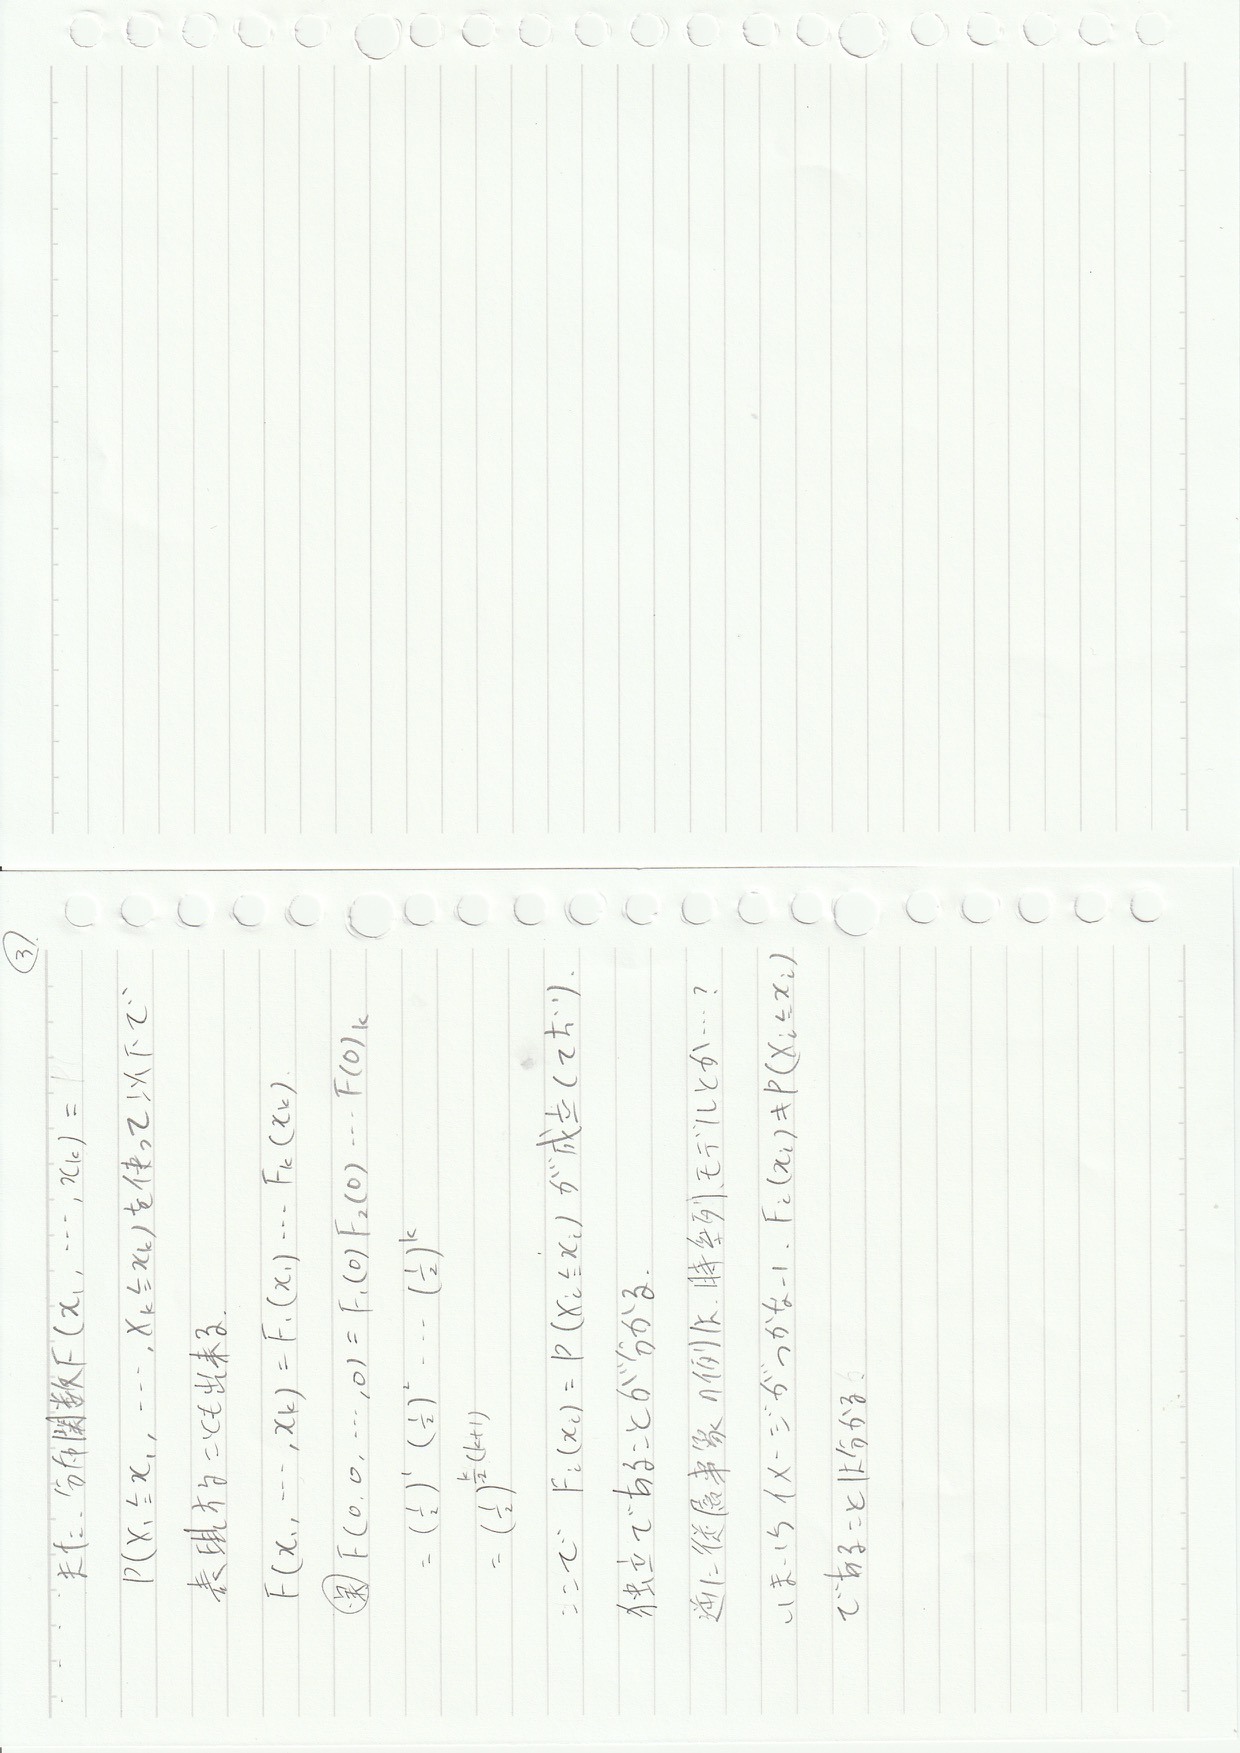 ③
また、分布関数F(x₁, ⋯, xₖ) =
P(X₁≦x₁, ⋯, Xₖ≦xₖ)を使って以下で
表現することも出来る.
F(x₁, ⋯, xₖ) = F₁(x₁) ⋯ Fₖ(xₖ).
F(0, 0, ⋯, 0) = F₁(0) F₂(0) ⋯ F(0)ₖ
= (1/2)¹ (1/2)² ⋯ (1/2)ᵏ
= (1/2)^{k/2 (k+1)}
ここで Fᵢ(xᵢ) = P(Xᵢ≦xᵢ) が成立しており.
独立であることが分かる.
逆に従属事象の例は、時系列モデルとか…?
いまいちイメージがつかない. Fᵢ(xᵢ)≠P(Xᵢ≦xᵢ)
であることは分かる.